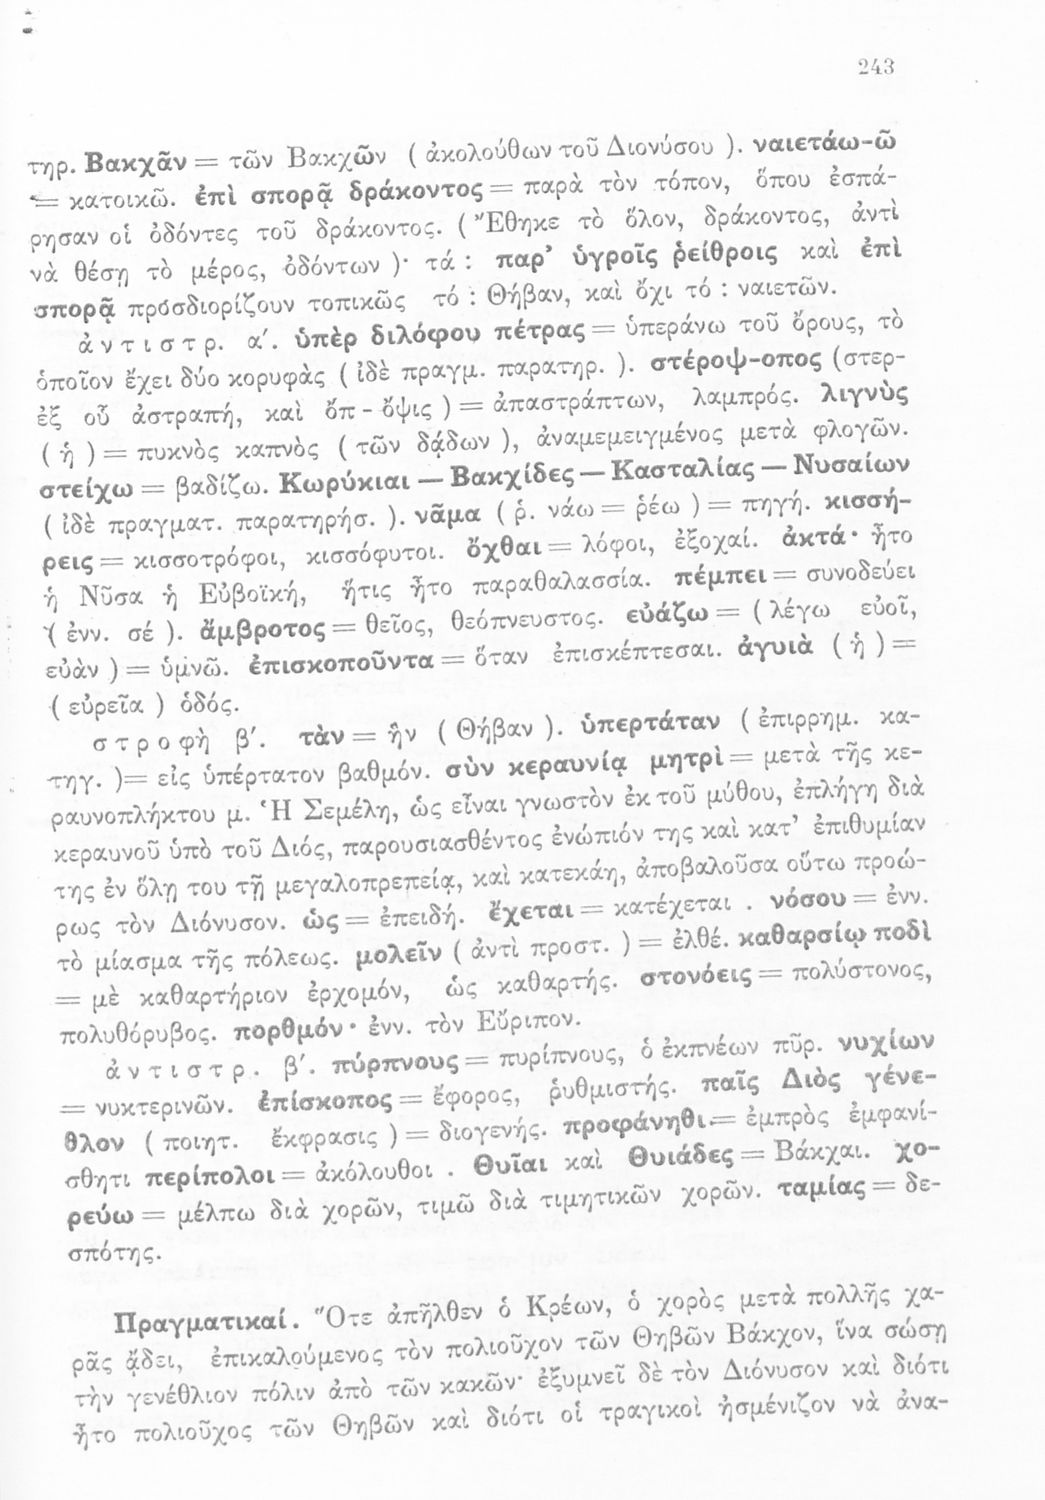 243
τηρ. Βακχᾶν = τῶν Βακχῶν ( ἀκολούθων τοῦ Διονύσου ). ναιετάω-ῶ
= κατοικῶ. ἐπὶ σπορᾷ δράκοντος = παρὰ τὸν τόπον, ὅπου ἐσπά-
ρησαν οἱ ὀδόντες τοῦ δράκοντος. ( Ἔθηκε τὸ ὅλον, δράκοντος, ἀντὶ
νὰ θέσῃ τὸ μέρος, ὀδόντων )· τά : παρ’ ὑγροῖς ῥείθροις καὶ ἐπὶ
σπορᾷ προσδιορίζουν τοπικῶς τό : Θήβαν, καὶ ὄχι τό : ναιετῶν.
ἀντιστρ. α′. ὑπὲρ διλόφου πέτρας = ὑπεράνω τοῦ ὄρους, τὸ
ὁποῖον ἔχει δύο κορυφὰς ( ἰδὲ πραγμ. παρατηρ. ). στέροψ-οπος (στερ-
ἐξ οὗ ἀστραπή, καὶ ὄπ - ὄψις ) = ἀπαστράπτων, λαμπρός. λιγνὺς
( ἡ ) = πυκνὸς καπνὸς ( τῶν δᾴδων ), ἀναμεμειγμένος μετὰ φλογῶν.
στείχω = βαδίζω. Κωρύκιαι — Βακχίδες — Κασταλίας — Νυσαίων
( ἰδὲ πραγματ. παρατηρήσ. ). νᾶμα ( ῥ. νάω = ῥέω ) = πηγή. κισσή-
ρεις = κισσοτρόφοι, κισσόφυτοι. ὄχθαι = λόφοι, ἐξοχαί. ἀκτά· ἦτο
ἡ Νῦσα ἡ Εὐβοϊκή, ἥτις ἦτο παραθαλασσία. πέμπει = συνοδεύει
( ἐνν. σέ ). ἄμβροτος = θεῖος, θεόπνευστος. εὐάζω = ( λέγω εὐοῖ,
εὐὰν ) = ὑμνῶ. ἐπισκοποῦντα = ὅταν ἐπισκέπτεσαι. ἀγυιὰ ( ἡ ) =
( εὐρεῖα ) ὁδός.
στροφὴ β′. τὰν = ἣν ( Θήβαν ). ὑπερτάταν ( ἐπιρρημ. κα-
τηγ. )= εἰς ὑπέρτατον βαθμόν. σὺν κεραυνίᾳ μητρὶ = μετὰ τῆς κε-
ραυνοπλήκτου μ. Ἡ Σεμέλη, ὡς εἶναι γνωστὸν ἐκ τοῦ μύθου, ἐπλήγη διὰ
κεραυνοῦ ὑπὸ τοῦ Διός, παρουσιασθέντος ἐνώπιόν της καὶ κατ’ ἐπιθυμίαν
της ἐν ὅλῃ του τῇ μεγαλοπρεπείᾳ, καὶ κατεκάη, ἀποβαλοῦσα οὕτω προώ-
ρως τὸν Διόνυσον. ὡς = ἐπειδή. ἔχεται = κατέχεται . νόσου = ἐνν.
τὸ μίασμα τῆς πόλεως. μολεῖν ( ἀντὶ προστ. ) = ἐλθέ. καθαρσίῳ ποδὶ
= μὲ καθαρτήριον ἐρχομόν, ὡς καθαρτής. στονόεις = πολύστονος,
πολυθόρυβος. πορθμόν· ἐνν. τὸν Εὔριπον.
ἀντιστρ. β′. πύρπνους = πυρίπνους, ὁ ἐκπνέων πῦρ. νυχίων
= νυκτερινῶν. ἐπίσκοπος = ἔφορος, ῥυθμιστής. παῖς Διὸς γένε-
θλον ( ποιητ. ἔκφρασις ) = διογενής. προφάνηθι = ἐμπρὸς ἐμφανί-
σθητι περίπολοι = ἀκόλουθοι . Θυῖαι καὶ Θυιάδες = Βάκχαι. χο-
ρεύω = μέλπω διὰ χορῶν, τιμῶ διὰ τιμητικῶν χορῶν. ταμίας = δε-
σπότης.
Πραγματικαί. Ὅτε ἀπῆλθεν ὁ Κρέων, ὁ χορὸς μετὰ πολλῆς χα-
ρᾶς ᾄδει, ἐπικαλούμενος τὸν πολιοῦχον τῶν Θηβῶν Βάκχον, ἵνα σώσῃ
τὴν γενέθλιον πόλιν ἀπὸ τῶν κακῶν· ἐξυμνεῖ δὲ τὸν Διόνυσον καὶ διότι
ἦτο πολιοῦχος τῶν Θηβῶν καὶ διότι οἱ τραγικοὶ ἠσμένιζον νὰ ἀνα-